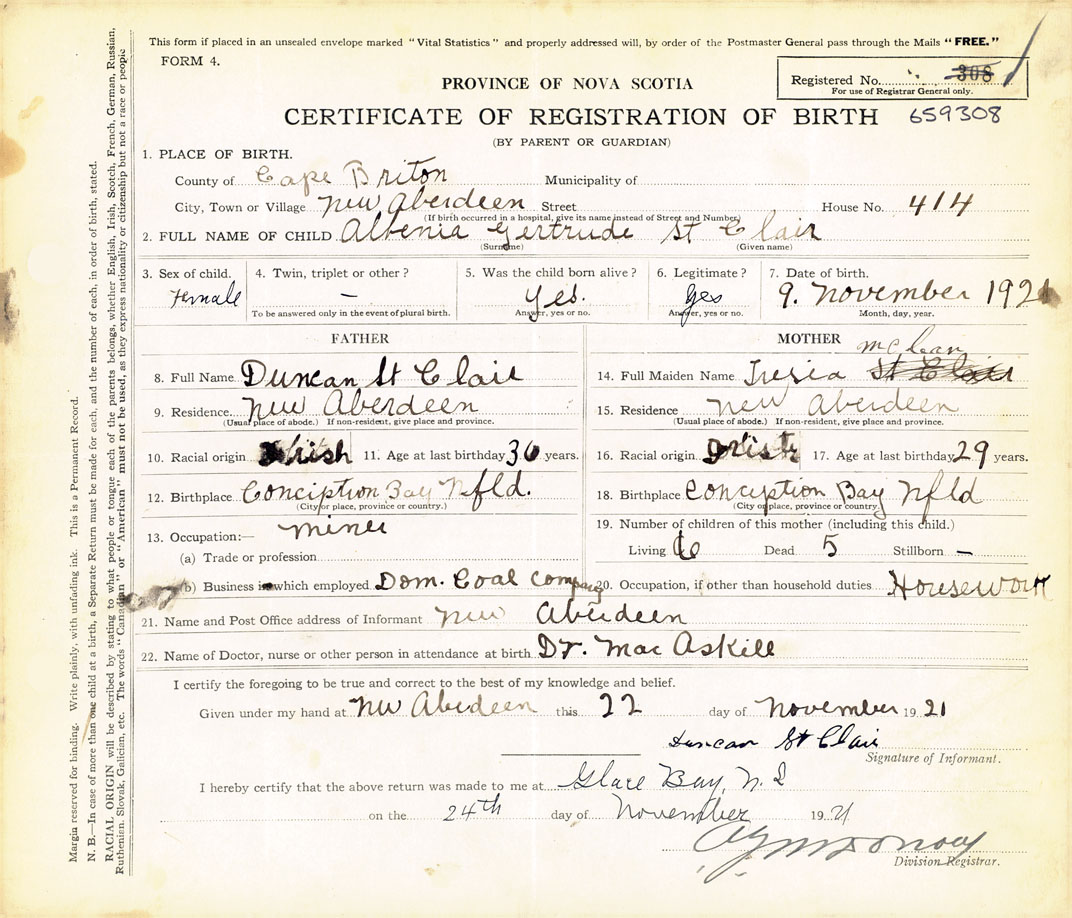 This form if placed in an unsealed envelope marked "Vital Statistics" and properly addressed will, by order of the Postmaster General pass through the Mails "FREE."
FORM 4.
Registered No. 308
For use of Registrar General only.
PROVINCE OF NOVA SCOTIA
CERTIFICATE OF REGISTRATION OF BIRTH 659308
(BY PARENT OR GUARDIAN)
1. PLACE OF BIRTH.
County of Cape Briton Municipality of
City, Town or Village New Aberdeen Street House No. 414
(If birth occurred in a hospital, give its name instead of Street and Number)
2. FULL NAME OF CHILD Albenia Gertrude St Clair
(Surname) (Given name)
3. Sex of child. 4. Twin, triplet or other? 5. Was the child born alive? 6. Legitimate? 7. Date of birth.
Female — Yes. Yes 9. November 1921
To be answered only in the event of plural birth. Answer, yes or no. Answer, yes or no. Month, day, year.
FATHER
8. Full Name Duncan St Clair
9. Residence New Aberdeen
(Usual place of abode.) If non-resident, give place and province.
10. Racial origin Irish 11. Age at last birthday 36 years.
12. Birthplace Conciption Bay Nfld.
(City or place, province or country.)
13. Occupation:— miner
(a) Trade or profession
(b) Business in which employed Dom. Coal Company
MOTHER
McLean
14. Full Maiden Name Tresia St Clair
15. Residence New Aberdeen
(Usual place of abode.) If non-resident, give place and province.
16. Racial origin Irish 17. Age at last birthday 29 years.
18. Birthplace Conciption Bay Nfld
(City or place, province or country.)
19. Number of children of this mother (including this child.)
Living 6 Dead 5 Stillborn —
20. Occupation, if other than household duties Housework
21. Name and Post Office address of Informant New Aberdeen
22. Name of Doctor, nurse or other person in attendance at birth Dr. Mac Askill
I certify the foregoing to be true and correct to the best of my knowledge and belief.
Given under my hand at New Aberdeen this 22 day of November 1921
Duncan St Clair
Signature of Informant.
I hereby certify that the above return was made to me at Glace Bay, N.S
on the 24th day of November 1921
Division Registrar.
Margin reserved for binding. Write plainly, with unfading ink. This is a Permanent Record.
N. B.—In case of more than one child at a birth, a Separate Return must be made for each, and the number of each, in order of birth, stated.
RACIAL ORIGIN will be described by stating to what people or tongue each of the parents belongs, whether English, Irish, Scotch, French, German, Russian,
Ruthenian, Slovak, Galician, etc. The words "Canadian" or "American" must not be used, as they express nationality or citizenship but not a race or people